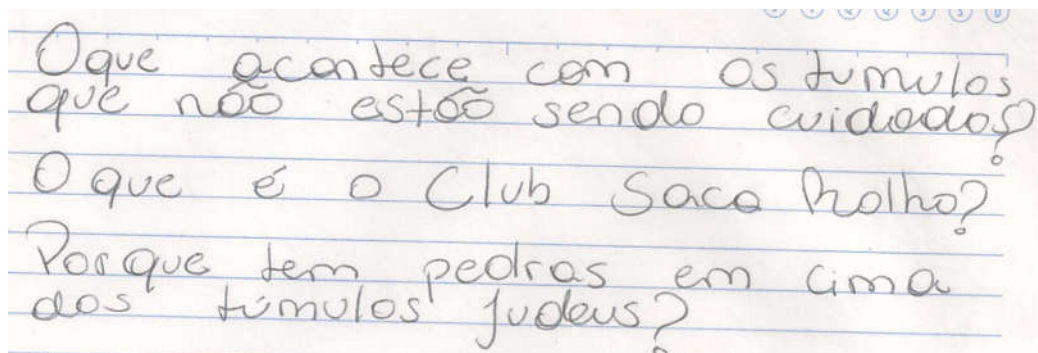 Oque acontece com os tumulos
que não estão sendo cuidados?
O que é o Club Saca Rolho?
Porque tem pedras em cima
dos túmulos judeus?